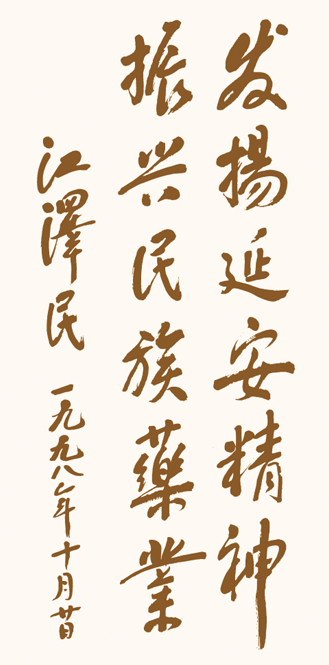 发揚延安精神
振兴民族藥業
江澤民
一九九八年十月廿日